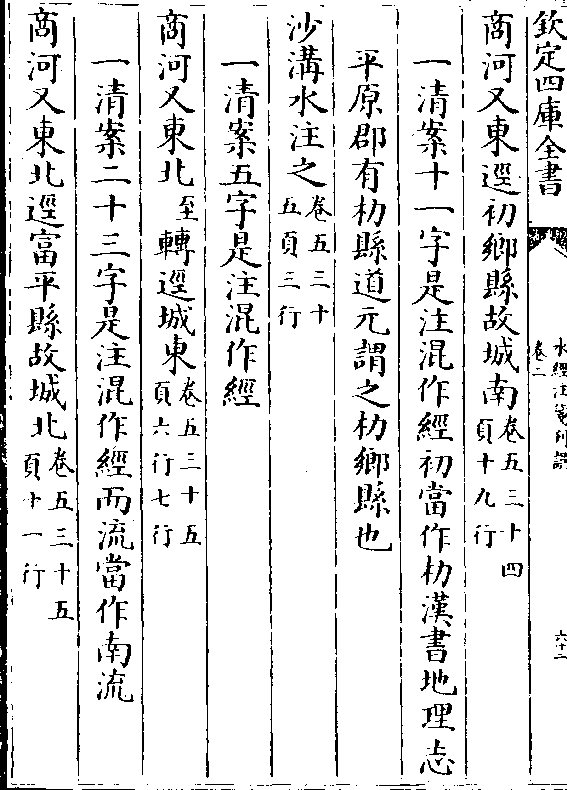 欽定四庫全書
水經注箋刊誤
卷二
六十二
商河又東逕初鄉縣故城南卷五三十四
頁十九行
一清案十一字是注混作經初當作朸漢書地理志
平原郡有朸縣道元謂之朸鄉縣也
沙溝水注之卷五三十
五頁三行
一清案五字是注混作經
商河又東北至轉逕城東卷五三十五
頁六行七行
一清案二十三字是注混作經而流當作南流
商河又東北逕富平縣故城北卷五三十五
頁十一行